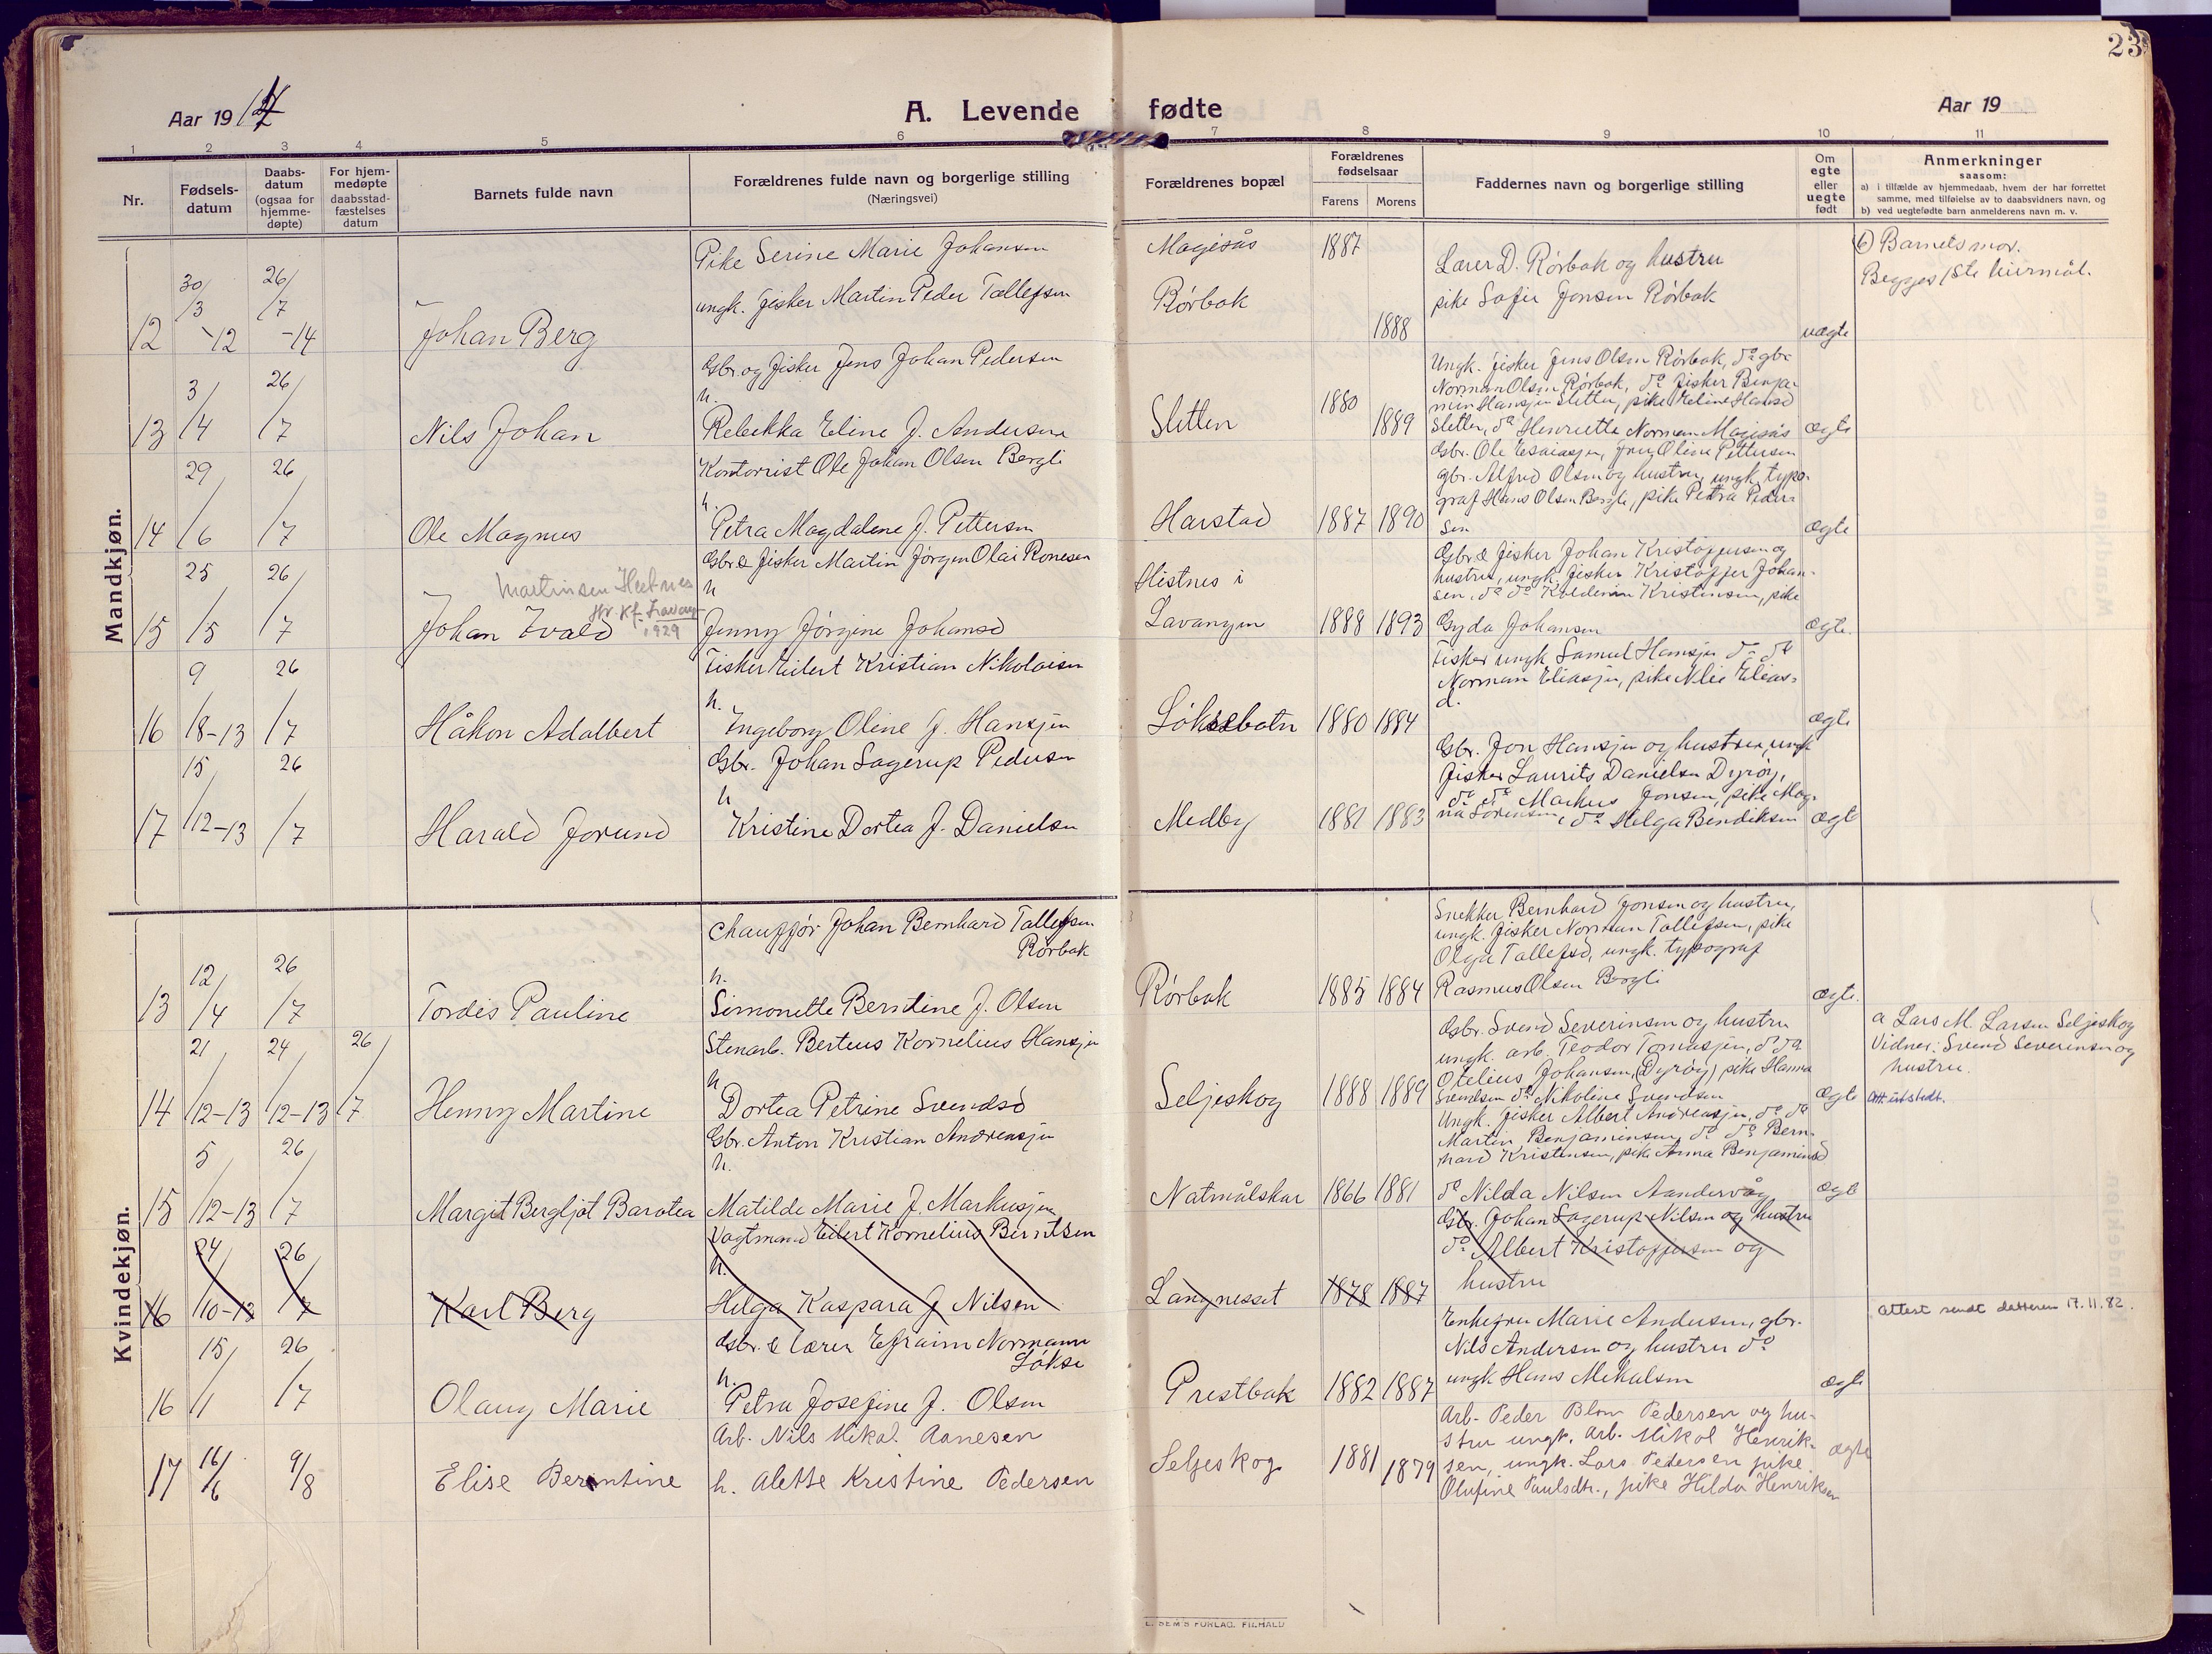 23
Aar 1914
A. Levende fødte
Aar 19
1 2 3 4 5 6 7 8 9 10 11
Nr.
Fødsels-
datum
Daabs-
datum
(ogsaa for
hjemme-
døpte)
For hjem-
medøpte
daabsstad-
fæstelses
datum
Barnets fulde navn
Forældrenes fulde navn og borgerlige stilling
(Næringsvei)
Forældrenes bopæl
Forældrenes
fødselsaar
Farens Morens
Faddernes navn og borgerlige stilling
Om
egte
eller
uegte
født
Anmerkninger
saasom:
a) i tilfælde av hjemmedaab, hvem der har forrettet
samme, med tilføielse av to daabsvidners navn, og
b) ved uegtefødte barn anmelderens navn m. v.
Mandkjøn.
12
30/3-12
26/7-14
Johan Berg
Pike Serine Marie Johansen
ungk. fisker Martin Peder Tollefsen
Magisås
Rørbak
1887
1888
Lærer D. Rørbak og hustru
pike Sofie Jonsen Rørbak
uægte
b) Barnets mor.
Begges 1ste leiermål.
13
3/4
26/7
Nils Johan
Gbr. og fisker Jens Johan Pedersen
h.
Rebekka Eline f. Andersen
Sletten
1880
1889
Ungk. fisker Jens Olsen Rørbak, do gbr
Norman Olsen Rørbak, do fisker Benja-
min Hansen Sletten, pike Eeline Hansd
Sletten, do Henriette Norman Magisås
ægte
14
29/6
26/7
Ole Magnus
Kontorrist Ole Johan Olsen Bergli
h.
Petra Magdalene f. Pettersen
Harstad
1887 1890
Gbr. Ole Esaiassen, fru Oline Pettersen
gbr. Alfred Olsen og hustru, ungk. typo-
graf Hans Olsen Bergli, pike Petra Peder
sen
ægte
15
25/5
26/7
Johan Evald
Martinsen Hestnes
1929
Gbr. & fisker Martin Jørgen Olai Ronesen
h
Jenny Jørgine Johansd
Hestnes i
Lavangen
1888 1893
Gbr. & fisker Johan Kristoffersen og
hustru, ungk. fisker Kristoffer Johan-
sen, do do Kristensen, pike
Gyda Johansen
ægte.
16
9/8-13
26/7
Håkon Adalbert
Fisker Eilert Kristian Nikolaisen
h.
Ingeborg Oline f. Hansen
Løksebotn
1880 1884
Fisker ungk Samuel Hansen do do
Norman Eliassen, pike Elias-
d.
ægte
17
15/12-13
26/7
Harald Jorund
Gbr. Johan Sagerup Pedersen
h
Kristine Dortea f. Danielsen
Medby
1881 1883
Gbr. Jon Hansen og hustru, ungk
fisker Laurits Danielsen Dyrøy,
do do Markus Jonsen, pike Mag-
na Sørensen, do Helga Bendiksen
ægte
Kvindekjøn.
13
12/4
26/7
Tordis Pauline
Chauffør Johan Bernhard Tollefsen
Rørbak
h.
Simonette Berntine f. Olsen
Rørbak
1885 1884
Snekker Bernhard Jonsen og hustru,
ungk. fisker Norman Tollefsen, pike
Olga Tollefsd, ungk. typograf
Rasmus Olsen Bergli
ægte.
14
21/12-13
24/12-13
26/7
Henny Martine
Stenarb. Berteus Kornelius Hansen
h
Dortea Petrine Svendsd
Seljeskog
1888 1889
Gbr. Svend Severinsen og hustru
ungk. arb. Teodor Tomassen, do do
Otelius Johansen, (Dyrøy) pike Hanna
Svendsen do Nikoline Svendsen
ægte
a Lars M. Larsen Seljeskog
Vidner: Svend Severinsen og
hustru.
Att. utstedt.
15
5/12-13
26/7
Margit Bergljot Barotea
Gbr. Anton Kristian Andreassen
h.
Matilde Marie f. Markussen
Natmålskar
1866 1881
Ungk. fisker Albert Andreassen, do do
Martin Benjaminsen, do do Bern-
hard Kristensen, pike Anna Benjaminsd
do Nilda Nilsen Aandervåg
ægte
16
24/10-13
26/7
Karl Berg
Vagtmand Eilert Kornelius Berntsen
h.
Helga Kaspara f Nilsen
Langnesset
1878 1887
Gbr. Johan Sagerup Nilsen og hustru
do Albert Kristoffersen og
hustru
16
15/1
26/7
Olaug Marie
Gbr. & lærer Efraim Normann
Løkse
h.
Petra Josefine f. Olsen
Prestbak
1882 1887
Enkefru Marie Andersen, gbr.
Nils Andersen og hustru do
ungk Hans Mikalsen
ægte
Attest sendt datteren 17.11.82.
17
16/6
9/8
Elise Berntine
Arb. Nils Mikal Aanesen
h. Alette Kristine Pedersen
Seljeskog
1881 1879
Arb. Peder Blom Pedersen og hu-
stru ungk. arb. Mikal Henrik-
sen, ungk. Lars Pedersen pike
Olufine Paulsdtr., pike Hilda Henriksen
ægte
E. SEM'S FORLAG. FR.HALD